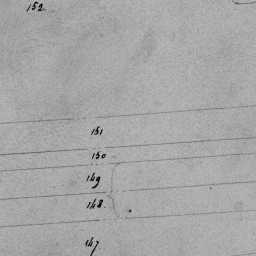 152.
151
150
149
148.
147